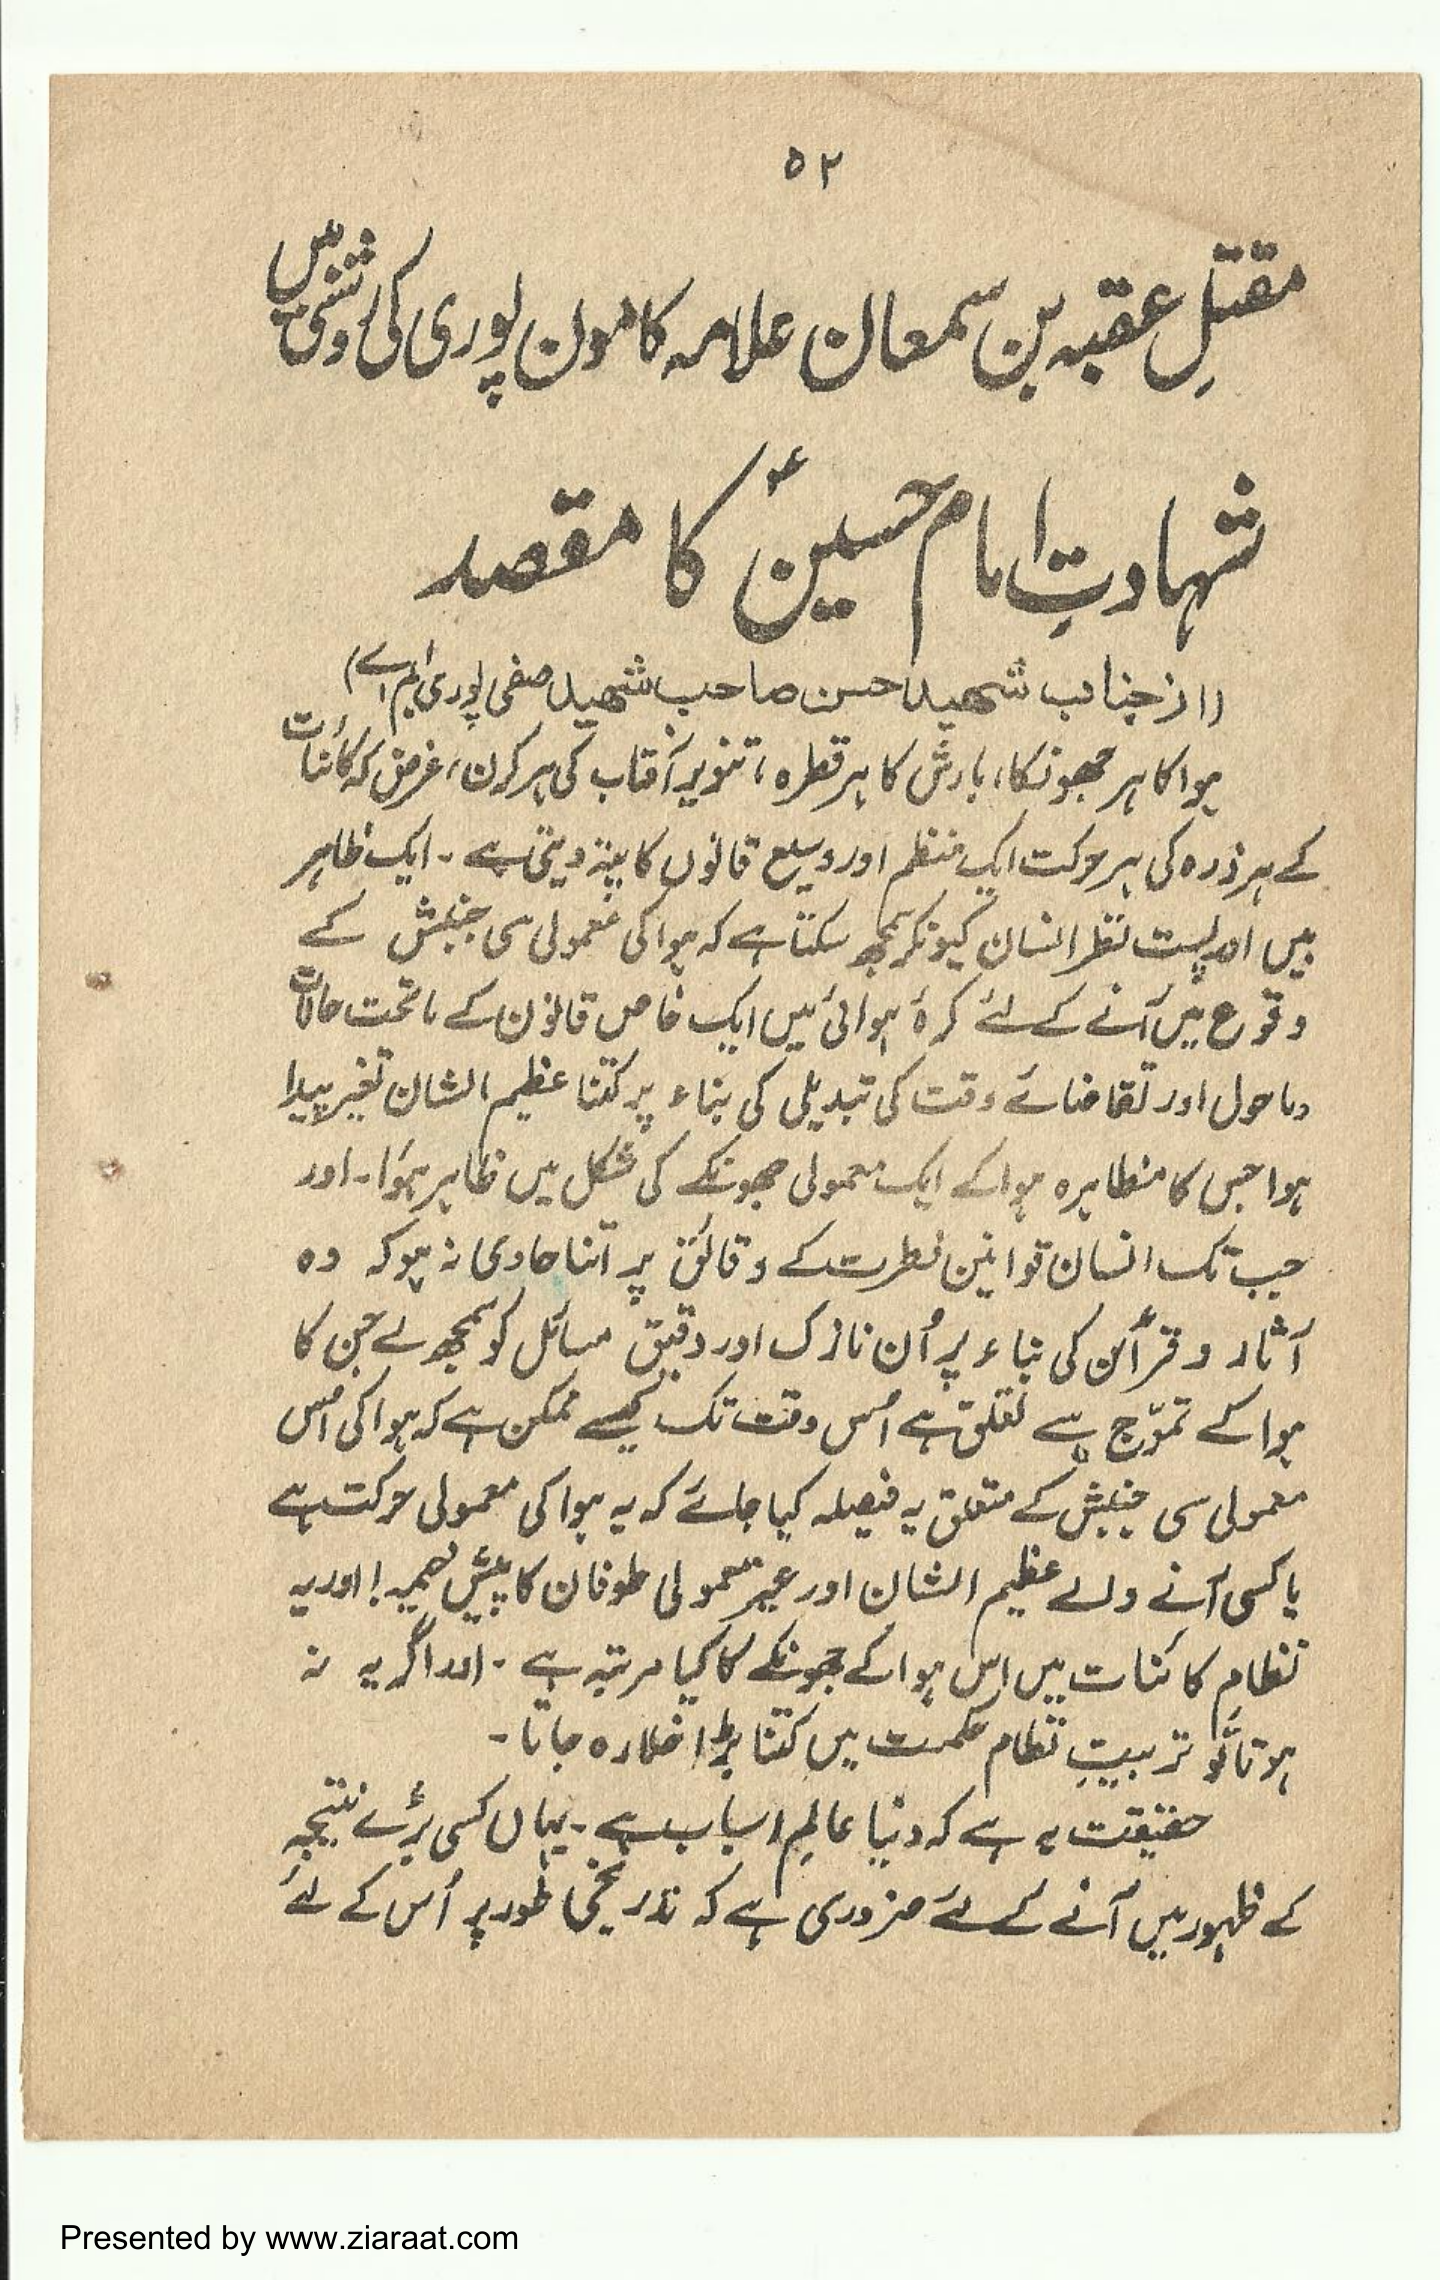 ۵۲
مقتلِ عقبہ بن سمعان علامہ کامون پوری کی روشنی میں
شہادتِ امام حسینؑ کا مقصد
(از جناب شہید حسن صاحب شہید صفی پوری ایم اے)
ہوا کا ہر جھونکا، بارش کا ہر قطرہ، تنویرِ آفتاب کی ہر کرن، غرض کہ کائنات
کے ہر ذرہ کی ہر حرکت ایک منظم اور وسیع قانون کا پتہ دیتی ہے ۔ ایک ظاہر
بیں اور پست نظر انسان کیونکر سمجھ سکتا ہے کہ ہوا کی معمولی سی جنبش کے
وقوع میں آنے کے لئے کرۂ ہوائی میں ایک خاص قانون کے ماتحت حالات
وماحول اور تقاضائے وقت کی تبدیلی کی بناء پر کتنا عظیم الشان تغیر پیدا
ہوا جس کا مظاہرہ ہوا کے ایک معمولی جھونکے کی شکل میں ظاہر ہؤا ۔ اور
جب تک انسان قوانین فطرت کے دقائق پر اتنا حاوی نہ ہو کہ وہ
آثار و قرائن کی بناء پر اُن نازک اور دقیق مسائل کو سمجھ لے جن کا
ہوا کے تموّج سے تعلق ہے اُس وقت تک کیسے ممکن ہے کہ ہوا کی اس
معمولی سی جنبش کے متعلق یہ فیصلہ کیا جائے کہ یہ ہوا کی معمولی حرکت ہے
یا کسی آنے والے عظیم الشان اور غیر معمولی طوفان کا پیش خیمہ! اور یہ
نظامِ کائنات میں اس ہوا کے جھونکے کا کیا مرتبہ ہے ۔ اور اگر یہ نہ
ہوتا تو تربیتِ نظام حکمت میں کتنا بڑا خلا رہ جاتا ۔
حقیقت یہ ہے کہ دنیا عالمِ اسباب ہے ۔ یہاں کسی بڑے نتیجہ
کے ظہور میں آنے کے لئے ضروری ہے کہ تدریجی طور پر اُس کے لئے
Presented by www.ziaraat.com